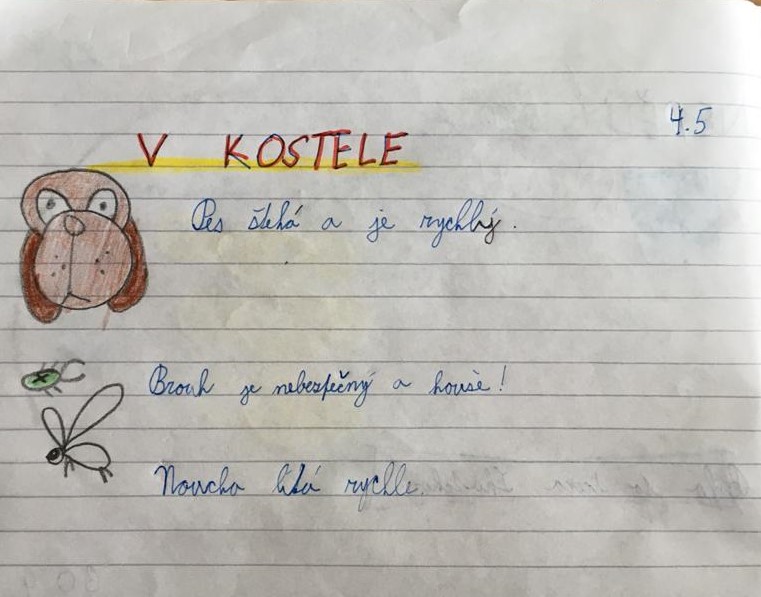 4.5
V KOSTELE
Pes štěká a je rychlý.
Brouk je nebezpečný a kouše!
Moucha lítá rychle.